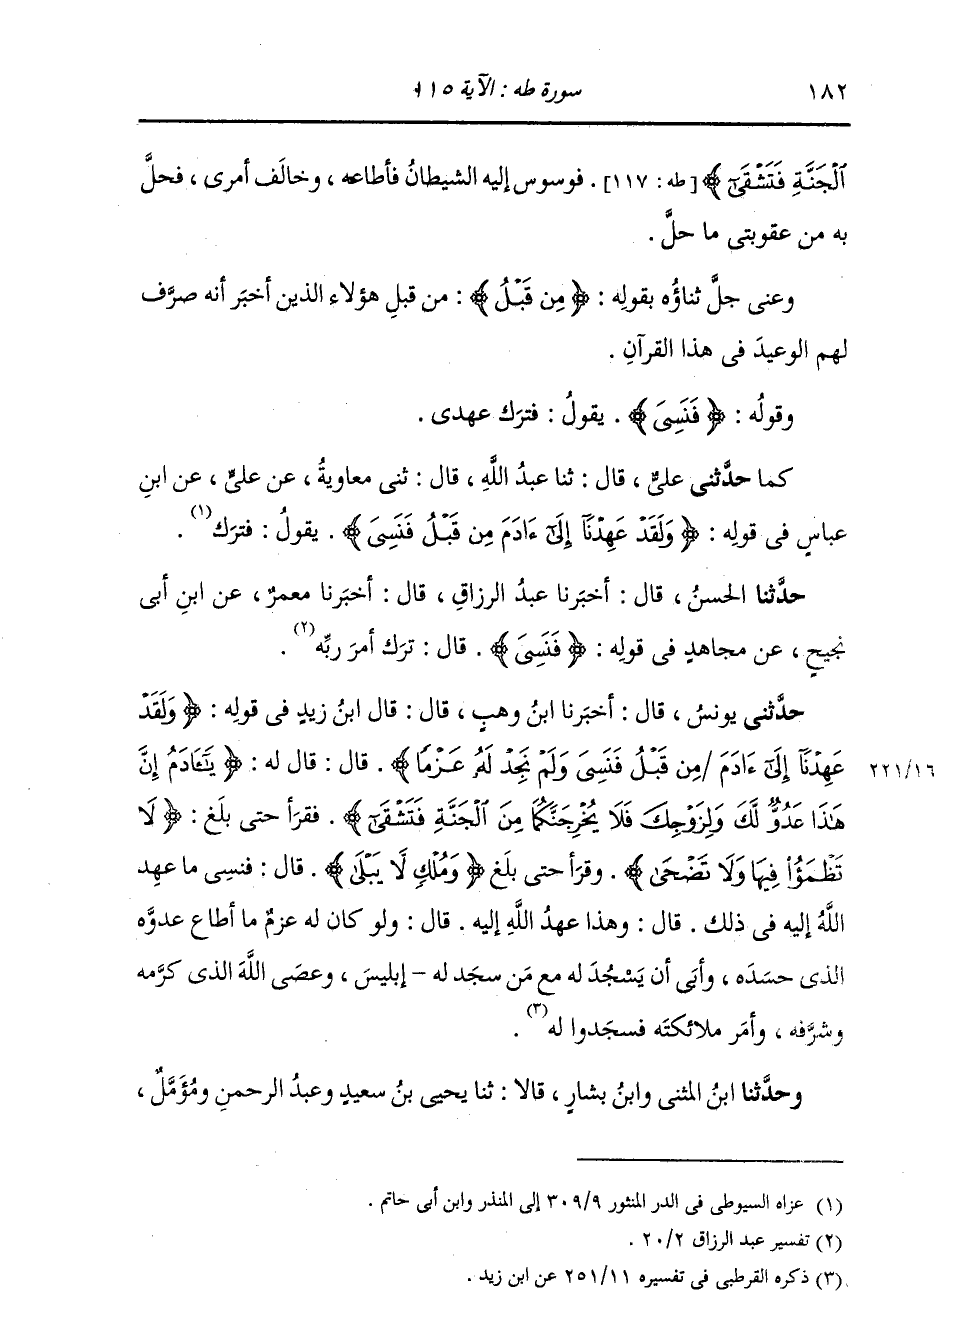 ١٨٢ سورة طه : الآية ١١٥
ٱلْجَنَّةِ فَتَشْقَىٰٓ ﴾ [طه: ١١٧] . فوسوس إليه الشيطانُ فأطاعه ، وخالَف أمرى ، فحلَّ
به من عقوبتى ما حلَّ .
وعنى جلَّ ثناؤُه بقولِه : ﴿ مِن قَبْلُ ﴾ : من قبلِ هؤلاء الذين أخبَر أنه صرَّف
لهم الوعيدَ فى هذا القرآنِ .
وقولُه : ﴿ فَنَسِىَ ﴾ . يقولُ : فترَك عهدى .
كما حدَّثنى علىٌّ ، قال : ثنا عبدُ اللَّهِ ، قال : ثنى معاويةُ ، عن علىٍّ ، عن ابنِ
عباسٍ فى قولِه : ﴿ وَلَقَدْ عَهِدْنَآ إِلَىٰٓ ءَادَمَ مِن قَبْلُ فَنَسِىَ ﴾ . يقولُ : فترَك(١) .
حدَّثنا الحسنُ ، قال : أخبَرنا عبدُ الرزاقِ ، قال : أخبَرنا معمرٌ ، عن ابنِ أبى
نجيحٍ ، عن مجاهدٍ فى قولِه : ﴿ فَنَسِىَ ﴾ . قال : ترَك أمرَ ربِّه(٢) .
حدَّثنى يونسُ ، قال : أخبَرنا ابنُ وهبٍ ، قال : قال ابنُ زيدٍ فى قولِه : ﴿ وَلَقَدْ
عَهِدْنَآ إِلَىٰٓ ءَادَمَ /مِن قَبْلُ فَنَسِىَ وَلَمْ نَجِدْ لَهُۥ عَزْمًا ﴾ . قال : قال له : ﴿ يَـٰٓـَٔادَمُ إِنَّ ٢٢١/١٦
هَـٰذَا عَدُوٌّ لَّكَ وَلِزَوْجِكَ فَلَا يُخْرِجَنَّكُمَا مِنَ ٱلْجَنَّةِ فَتَشْقَىٰٓ ﴾ . فقرَأ حتى بلَغ : ﴿ لَا
تَظْمَؤُا۟ فِيهَا وَلَا تَضْحَىٰ ﴾ . وقرَأ حتى بلَغ ﴿ وَمُلْكٍ لَّا يَبْلَىٰ ﴾ . قال : فنسِى ما عهِد
اللَّهُ إليه فى ذلك . قال : وهذا عهدُ اللَّهِ إليه . قال : ولو كان له عزمٌ ما أطاع عدوَّه
الذى حسَدَه ، وأبَى أن يَسْجُدَ له مع مَن سجَد له - إبليسَ ، وعصَى اللَّهَ الذى كرَّمه
وشرَّفه ، وأمَر ملائكتَه فسجَدوا له(٣) .
وحدَّثنا ابنُ المثنى وابنُ بشارٍ ، قالا : ثنا يحيى بنُ سعيدٍ وعبدُ الرحمنِ ومُؤَمَّلٌ ،
(١) عزاه السيوطى فى الدر المنثور ٣٠٩/٩ إلى المنذر وابن أبى حاتم .
(٢) تفسير عبد الرزاق ٢٠/٢ .
(٣) ذكره القرطبى فى تفسيره ٢٥١/١١ عن ابن زيد .